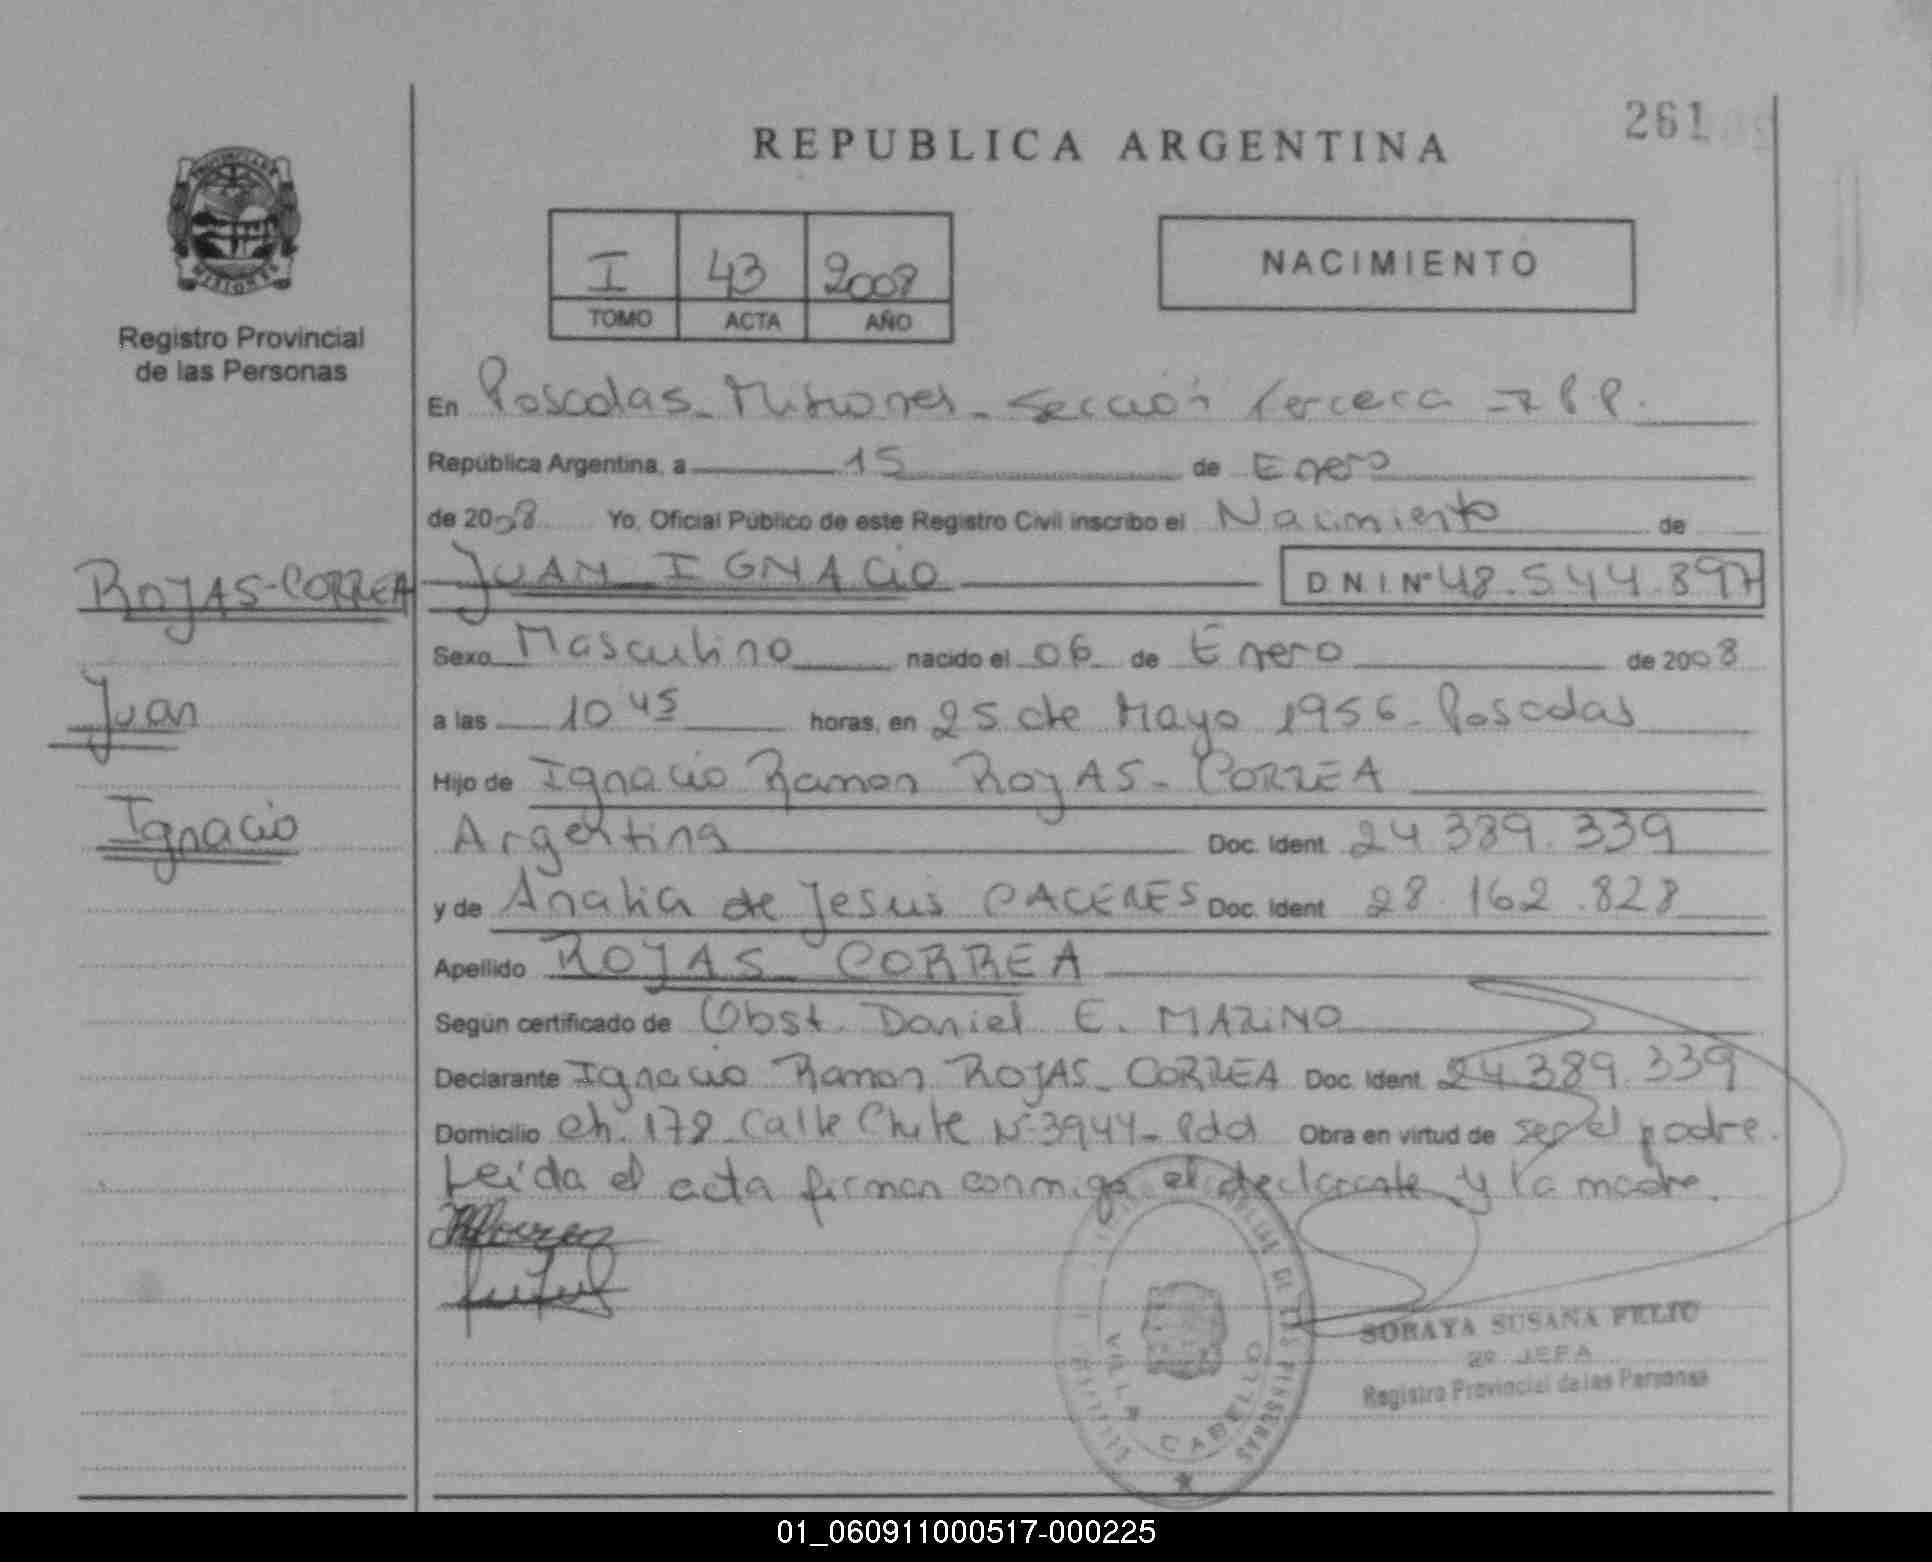 261
REPUBLICA ARGENTINA
I 43 2008
TOMO ACTA AÑO
NACIMIENTO
PROVINCIA DE MISIONES
Registro Provincial
de las Personas
En Posadas - Misiones - Sección Tercera
República Argentina, a 15 de Enero
de 2008 Yo, Oficial Público de este Registro Civil inscribo el Nacimiento de
ROJAS-CORREA JUAN IGNACIO D N I Nº 48.544.897
Sexo Masculino nacido el 06 de Enero de 2008
Juan
a las 10 45 horas, en 25 de Mayo 1956 - Posadas
Hijo de Ignacio Ramon ROJAS - CORREA
Ignacio
Argentina Doc. Ident. 24.389.339
y de Analia de Jesus CACERES Doc. Ident. 28.162.828
Apellido ROJAS CORREA
Según certificado de Obst. Daniel E. MARINO
Declarante Ignacio Ramon ROJAS - CORREA Doc. Ident. 24.389.339
Domicilio Ch. 178 - Calle Nº 3944 - Pdas Obra en virtud de ser el padre.
Leída el acta firman conmigo el declarante y la madre.
VILLA CABELLO
SORAYA SUSANA FELIU
2º JEFA
Registro Provincial de las Personas
01_060911000517-000225